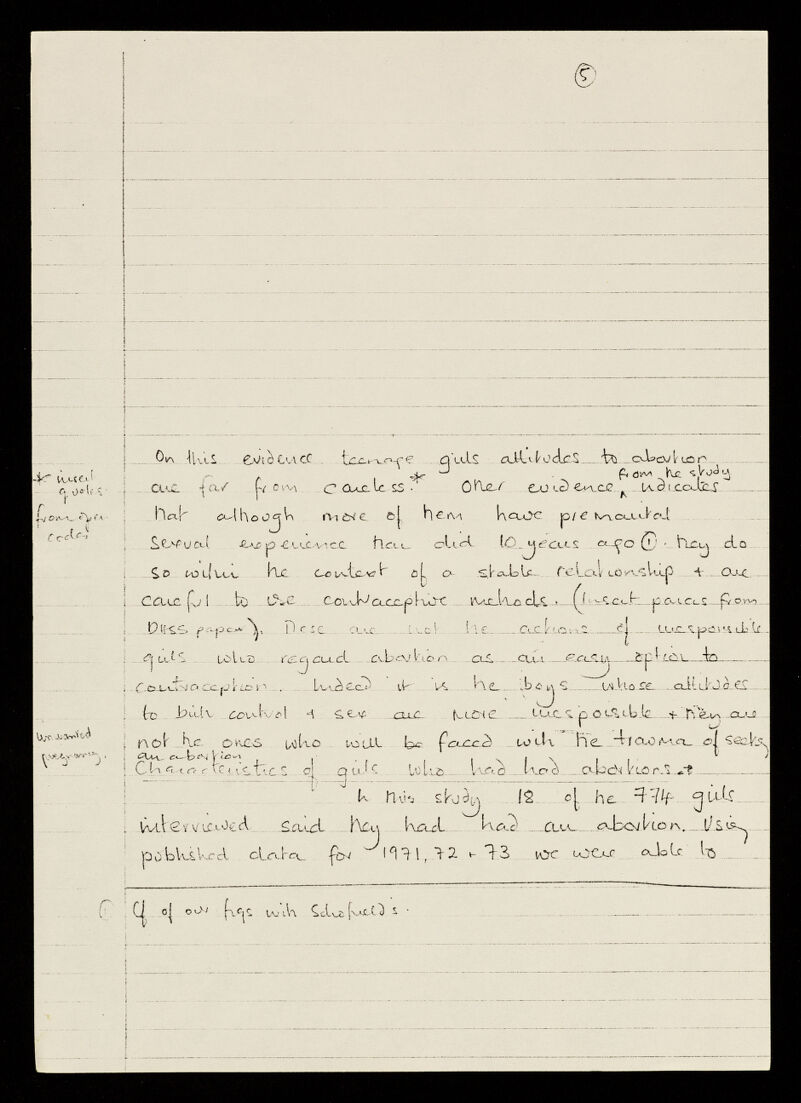 (5)
On this evidence teenage girls attitudes to abortion
from the study
* insert
quotes
from open
coded
are far from careless.* Other evidence indicates
that although more of them have premarital
sexual experience than did 10 years ago (1). They do
so within the context of a stable relationship + are
careful to use contraceptive methods. (Insert paras from
DHSS paper). These are not the actions of irresponsible
girls who regard abortion as an easy option to
contraception. Indeed it is the boys whose attitudes
to birth control + sex are more irresponsible + they are
unwanted
pregnancy.
not the ones who will be faced with the trauma of seeking
an abortion
Characteristics of girls who had had abortions.
In this study 12 of the 774 girls
interviewed said they had had an abortion. Using
published data for 1971, 72 + 73 we were able to
(1) Cf of our figs with Schofield's.